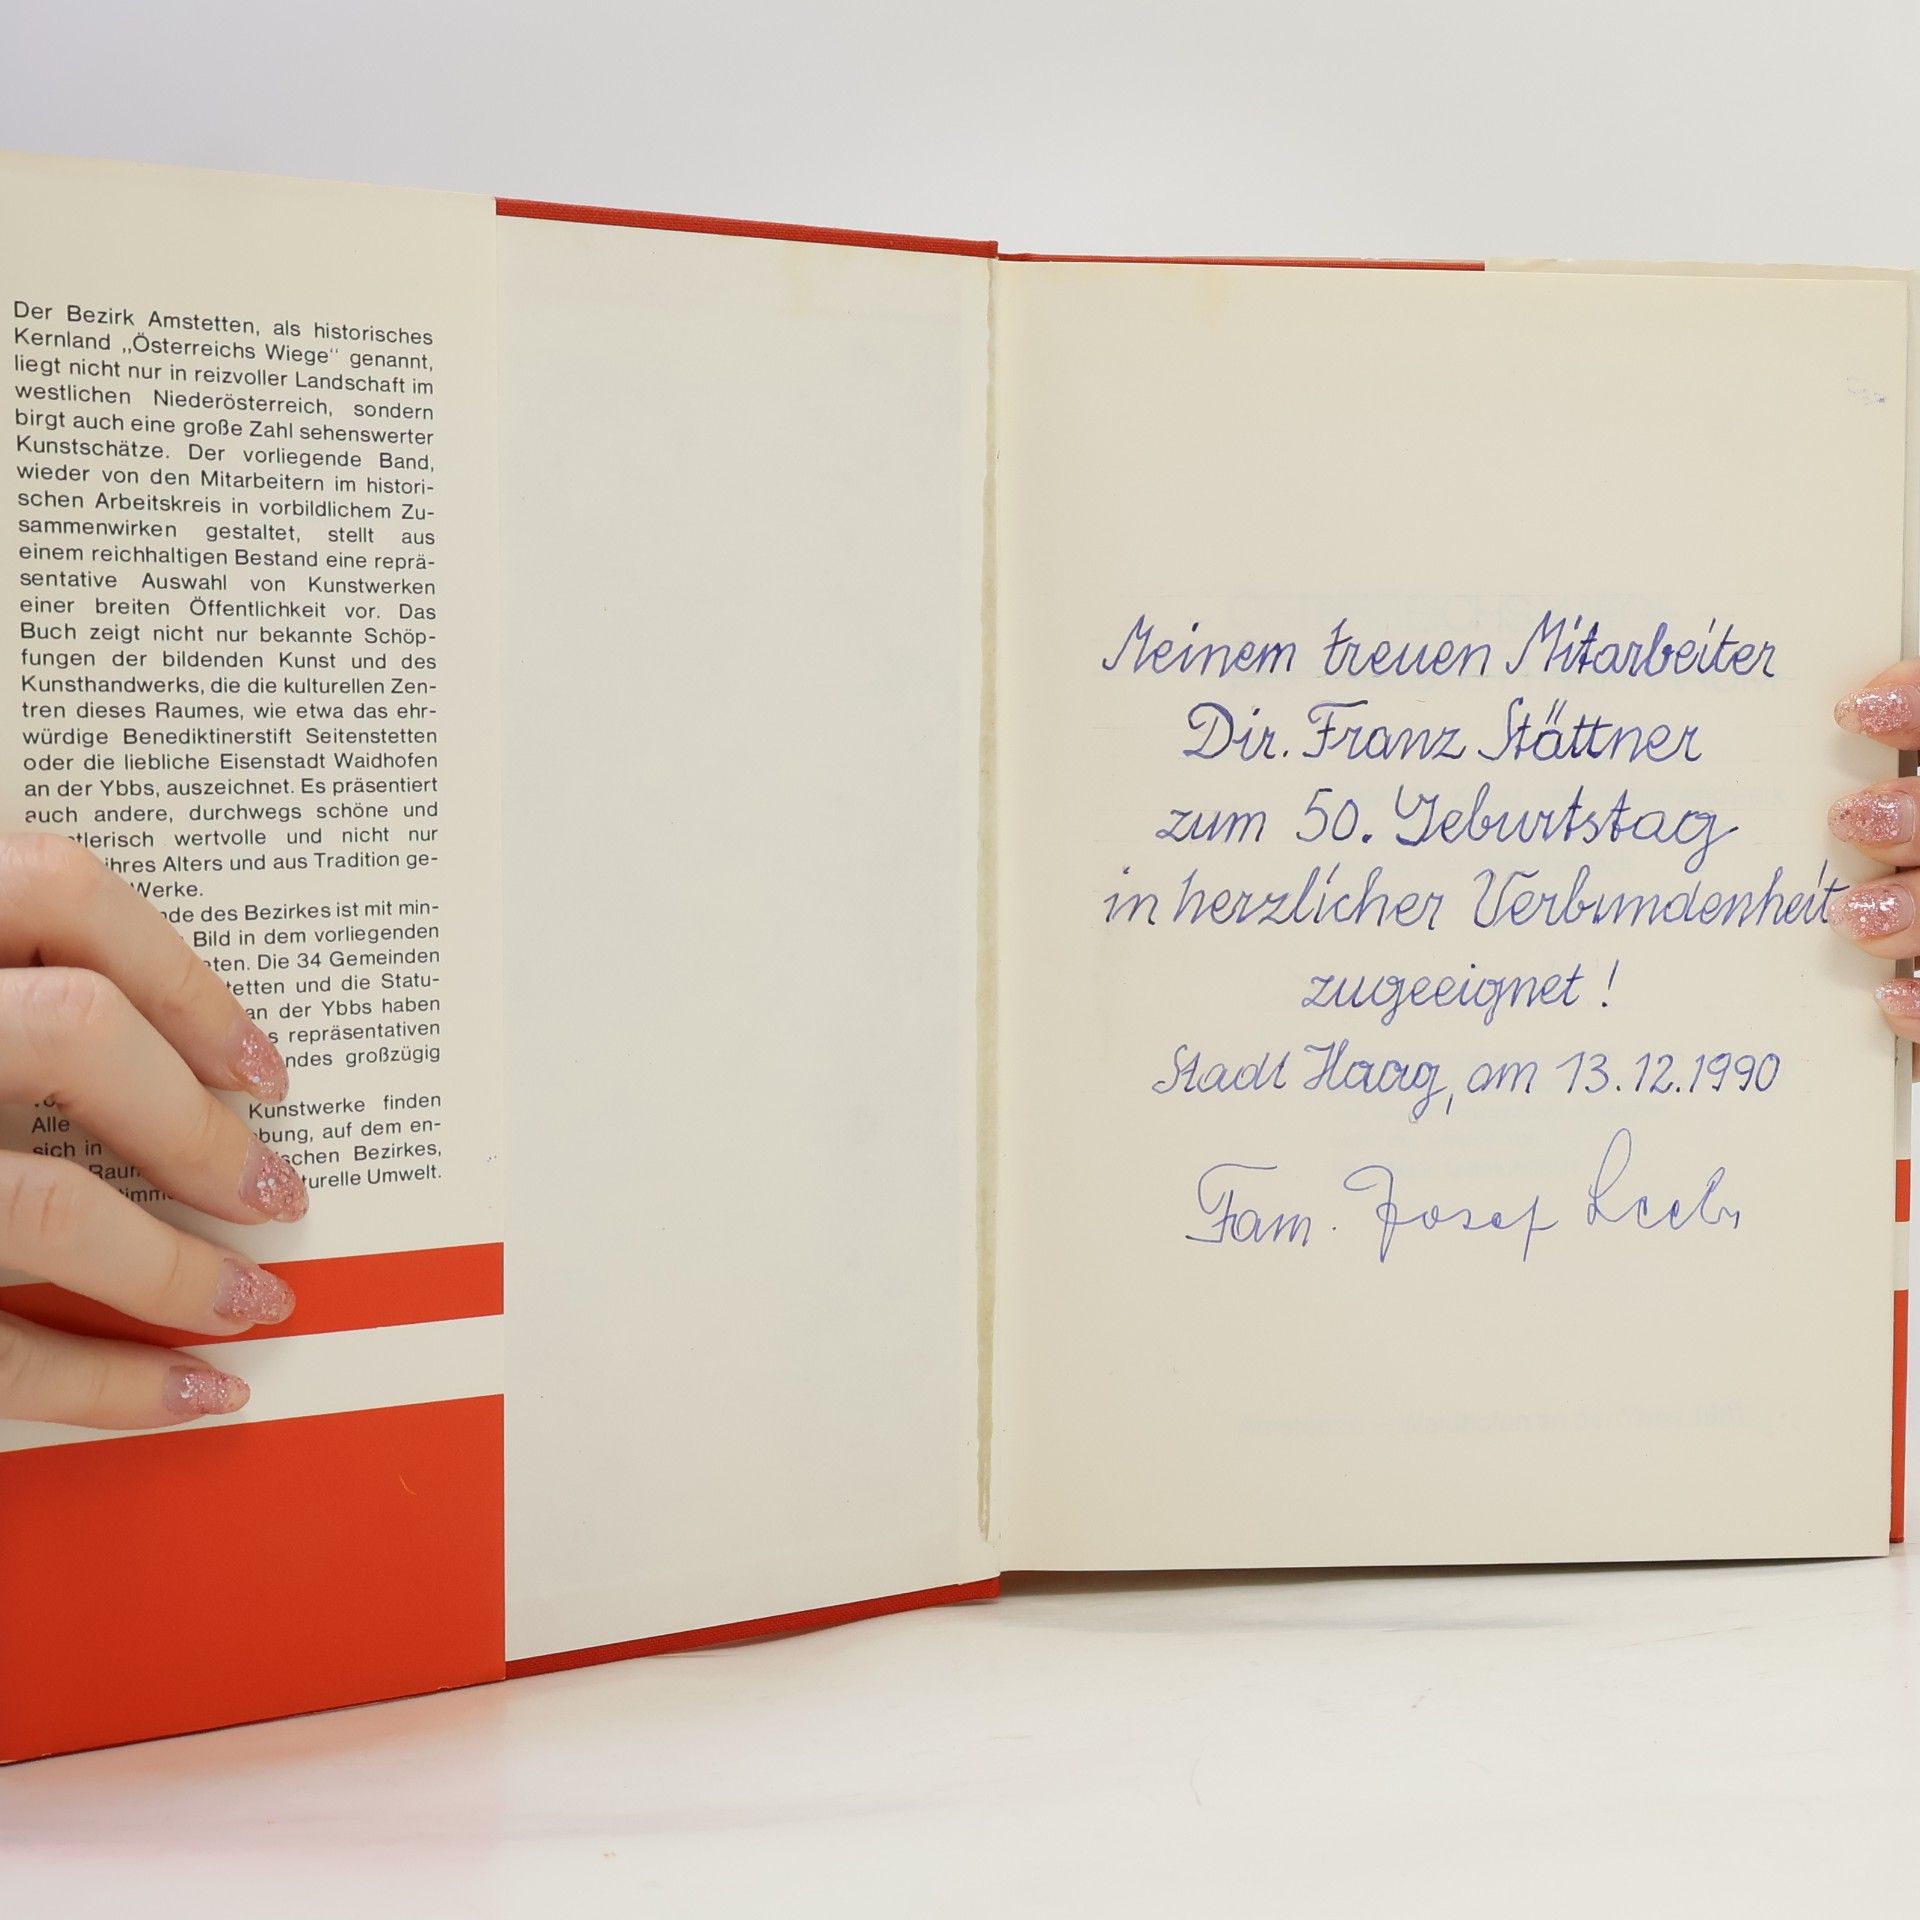 Der Bezirk Amstetten, als historisches
Kernland „Österreichs Wiege“ genannt,
liegt nicht nur in reizvoller Landschaft im
westlichen Niederösterreich, sondern
birgt auch eine große Zahl sehenswerter
Kunstschätze. Der vorliegende Band,
wieder von den Mitarbeitern im histori-
schen Arbeitskreis in vorbildlichem Zu-
sammenwirken gestaltet, stellt aus
einem reichhaltigen Bestand eine reprä-
sentative Auswahl von Kunstwerken
einer breiten Öffentlichkeit vor. Das
Buch zeigt nicht nur bekannte Schöp-
fungen der bildenden Kunst und des
Kunsthandwerks, die die kulturellen Zen-
tren dieses Raumes, wie etwa das ehr-
würdige Benediktinerstift Seitenstetten
oder die liebliche Eisenstadt Waidhofen
an der Ybbs, auszeichnet. Es präsentiert
auch andere, durchwegs schöne und
tlerisch wertvolle und nicht nur
ihres Alters und aus Tradition ge-
Werke.
nde des Bezirkes ist mit min-
Bild in dem vorliegenden
eten. Die 34 Gemeinden
tetten und die Statu-
an der Ybbs haben
s repräsentativen
ndes großzügig
Kunstwerke finden
Alle bung, auf dem en-
sich in schen Bezirkes,
Raum turelle Umwelt.
timm
Meinem treuen Mitarbeiter
Dir. Franz Stättner
zum 50. Geburtstag
in herzlicher Verbundenheit
zugeeignet!
Stadt Haag, am 13.12.1990
Fam. Josef Leeb